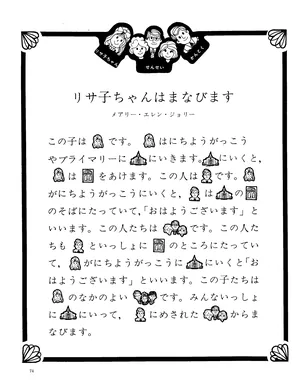 リサ子ちゃん
せんせい
かんとく
リサ子ちゃんはまなびます
メアリー・エレン・ジョリー
この子は です。 はにちようがっこう
やプライマリーに にいきます。 にいくと,
は をあけます。この人は です。
がにちようがっこうにいくと, は の
のそばにたっていて,「おはようございます」と
いいます。この人たちは です。この人た
ちも といっしょに のところにたってい
て, がにちようがっこうに にいくと「お
はようございます」といいます。この子たちは
のなかのよい です。みんないっしょ
に にいって, にめされた からま
なびます。
74